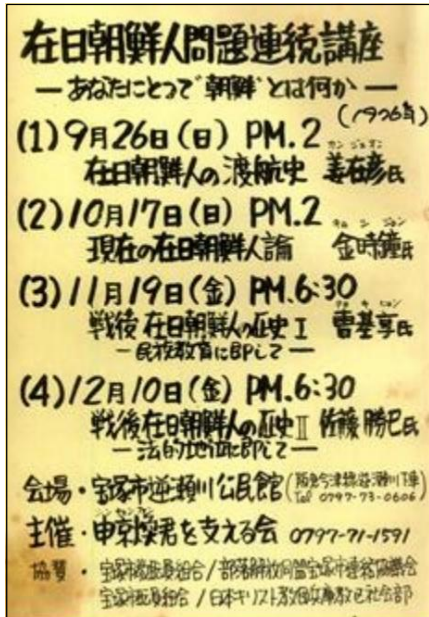 在日朝鮮人問題連続講座
— あなたにとって“朝鮮”とは何か —
(1976年)
(1) 9月26日(日) PM.2
在日朝鮮人の渡航史 姜在彦氏
(2) 10月17日(日) PM.2
現在の在日朝鮮人論 金時鐘氏
(3) 11月19日(金) PM.6:30
戦後在日朝鮮人の歴史 I 曺基享氏
— 民族教育に即して —
(4) 12月10日(金) PM.6:30
戦後在日朝鮮人の歴史 II 佐藤勝巳氏
— 法的地位に即して —
会場・宝塚市逆瀬川公民館(阪急今津線逆瀬川下車
Tel 0797-73-0606)
主催・申京煥君を支える会 0797-71-1591
協賛・宝塚市職員組合/部落解放同盟宝塚市連絡協議会
宝塚市教員組合/日本キリスト教団兵庫教区社会部